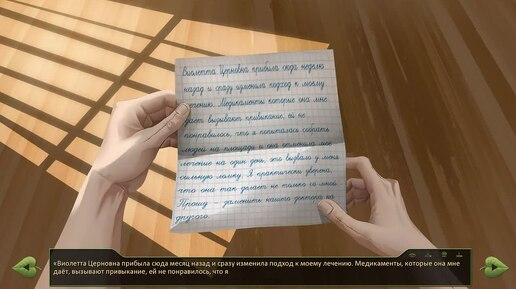 Виолетта Церновна прибыла сюда неделю
назад и сразу изменила подход к моему
лечению. Медикаменты которые она мне
даёт вызывают привыкание, ей не
понравилось, что я попыталась собрать
людей на площади и она отменила моё
лечение на один день, это вызвало у меня
сильную ломку. Я практически уверена,
что она так делает не только со мной.
Прошу - заменить нашего доктора на
другого.
«Виолетта Церновна прибыла сюда месяц назад и сразу изменила подход к моему лечению. Медикаменты, которые она мне
даёт, вызывают привыкание, ей не понравилось, что я